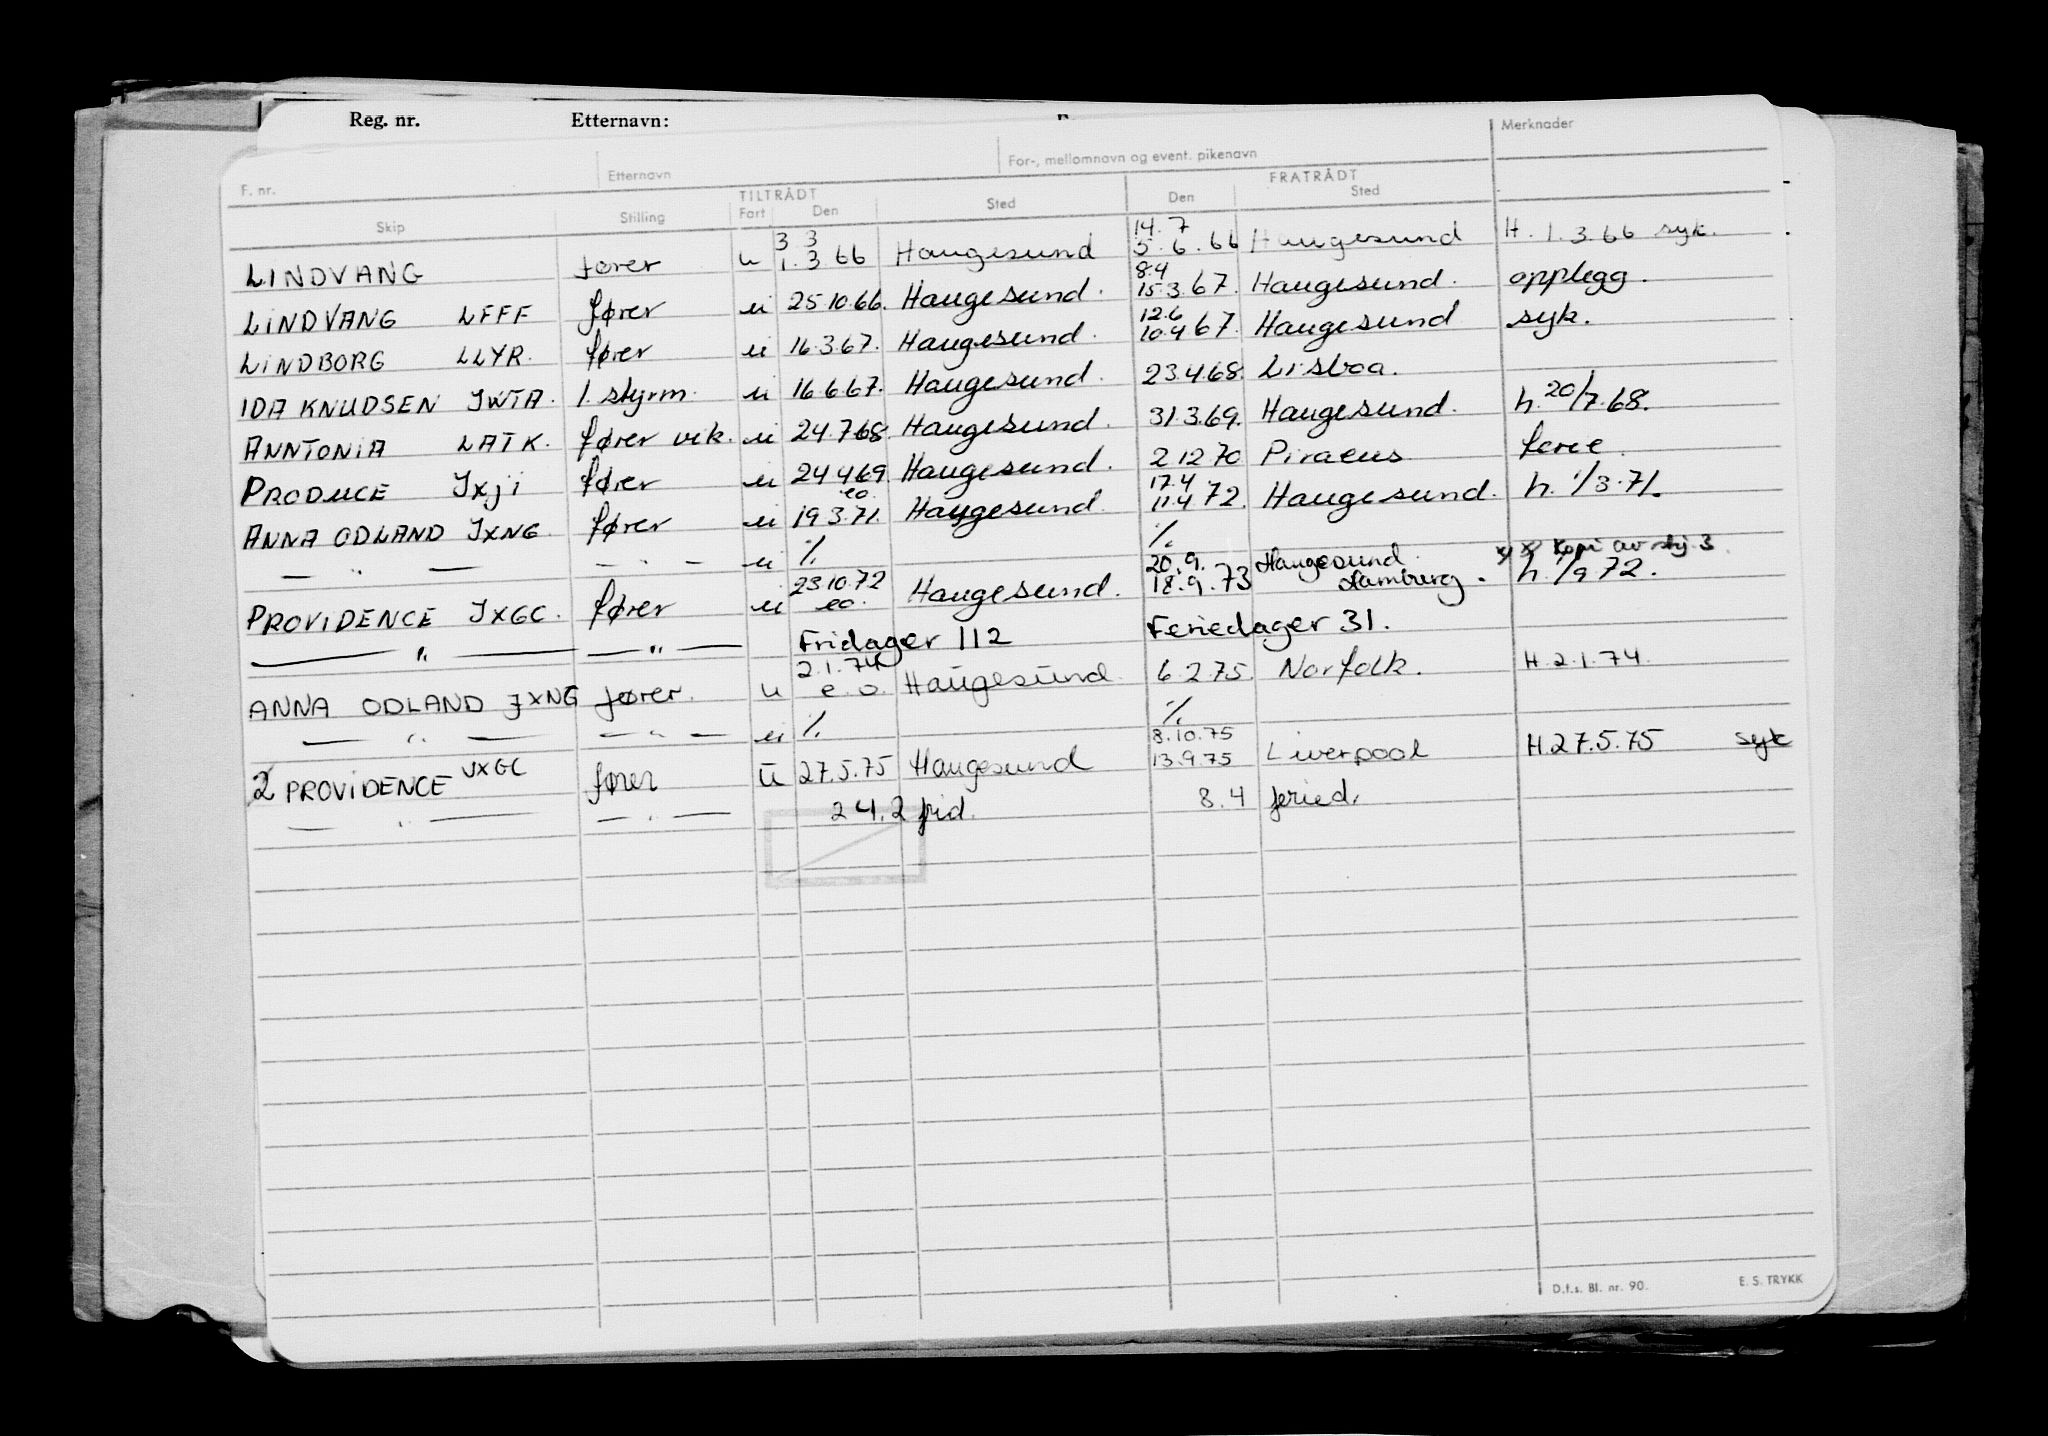 Reg. nr. Etternavn:
F. nr. Etternavn For-, mellomnavn og event. pikenavn Merknader
TILTRÅDT FRATRÅDT
Skip Stilling Fart Den Sted Den Sted
3 3 14. 7
LINDVANG fører u 1. 3 66 Haugesund 5. 6. 66 Haugesund H. 1. 3. 66 syk.
8.4
LINDVANG LFFF fører u 25 10.66. Haugesund. 15.3.67. Haugesund. opplegg.
12.6
LINDBORG LLYR. fører u 16.3.67. Haugesund. 10.4 67. Haugesund syk.
IDA KNUDSEN JWTA. 1. styrm. u 16.6.67. Haugesund. 23.4.68. Lisboa.
ANNTONIA LATK. fører vik. u 24.7.68. Haugesund. 31.3.69. Haugesund. h. 20/7.68.
PRODUCE JXJI fører u 24 4.69. Haugesund. 2 12 70 Piraeus ferie.
eo. 17.4
ANNA ODLAND JXNG. fører u 19 3.71. Haugesund. 11.4 72. Haugesund. h. 1/3.71.
— " — — " — u %. %.
23.10.72 20.9. Haugesund. x) x) Kopi av stj. 3.
PROVIDENCE JXGC. fører u eo. Haugesund. 18.9.73 Hamburg. h. 1/9 72.
— " — — " — Fridager 112 Feriedager 31.
2.1.74
ANNA ODLAND JXNG fører. u e.o. Haugesund. 6.2.75. Norfolk. H.2.1.74.
— " — — " — u %. %.
8.10.75
2 PROVIDENCE JXGC fører u 27.5.75 Haugesund 13.9.75 Liverpool H.27.5.75 syk
— " — — " — 24.2 frid. 8.4 feried.
D.f.s. Bl. nr. 90. E. S. TRYKK